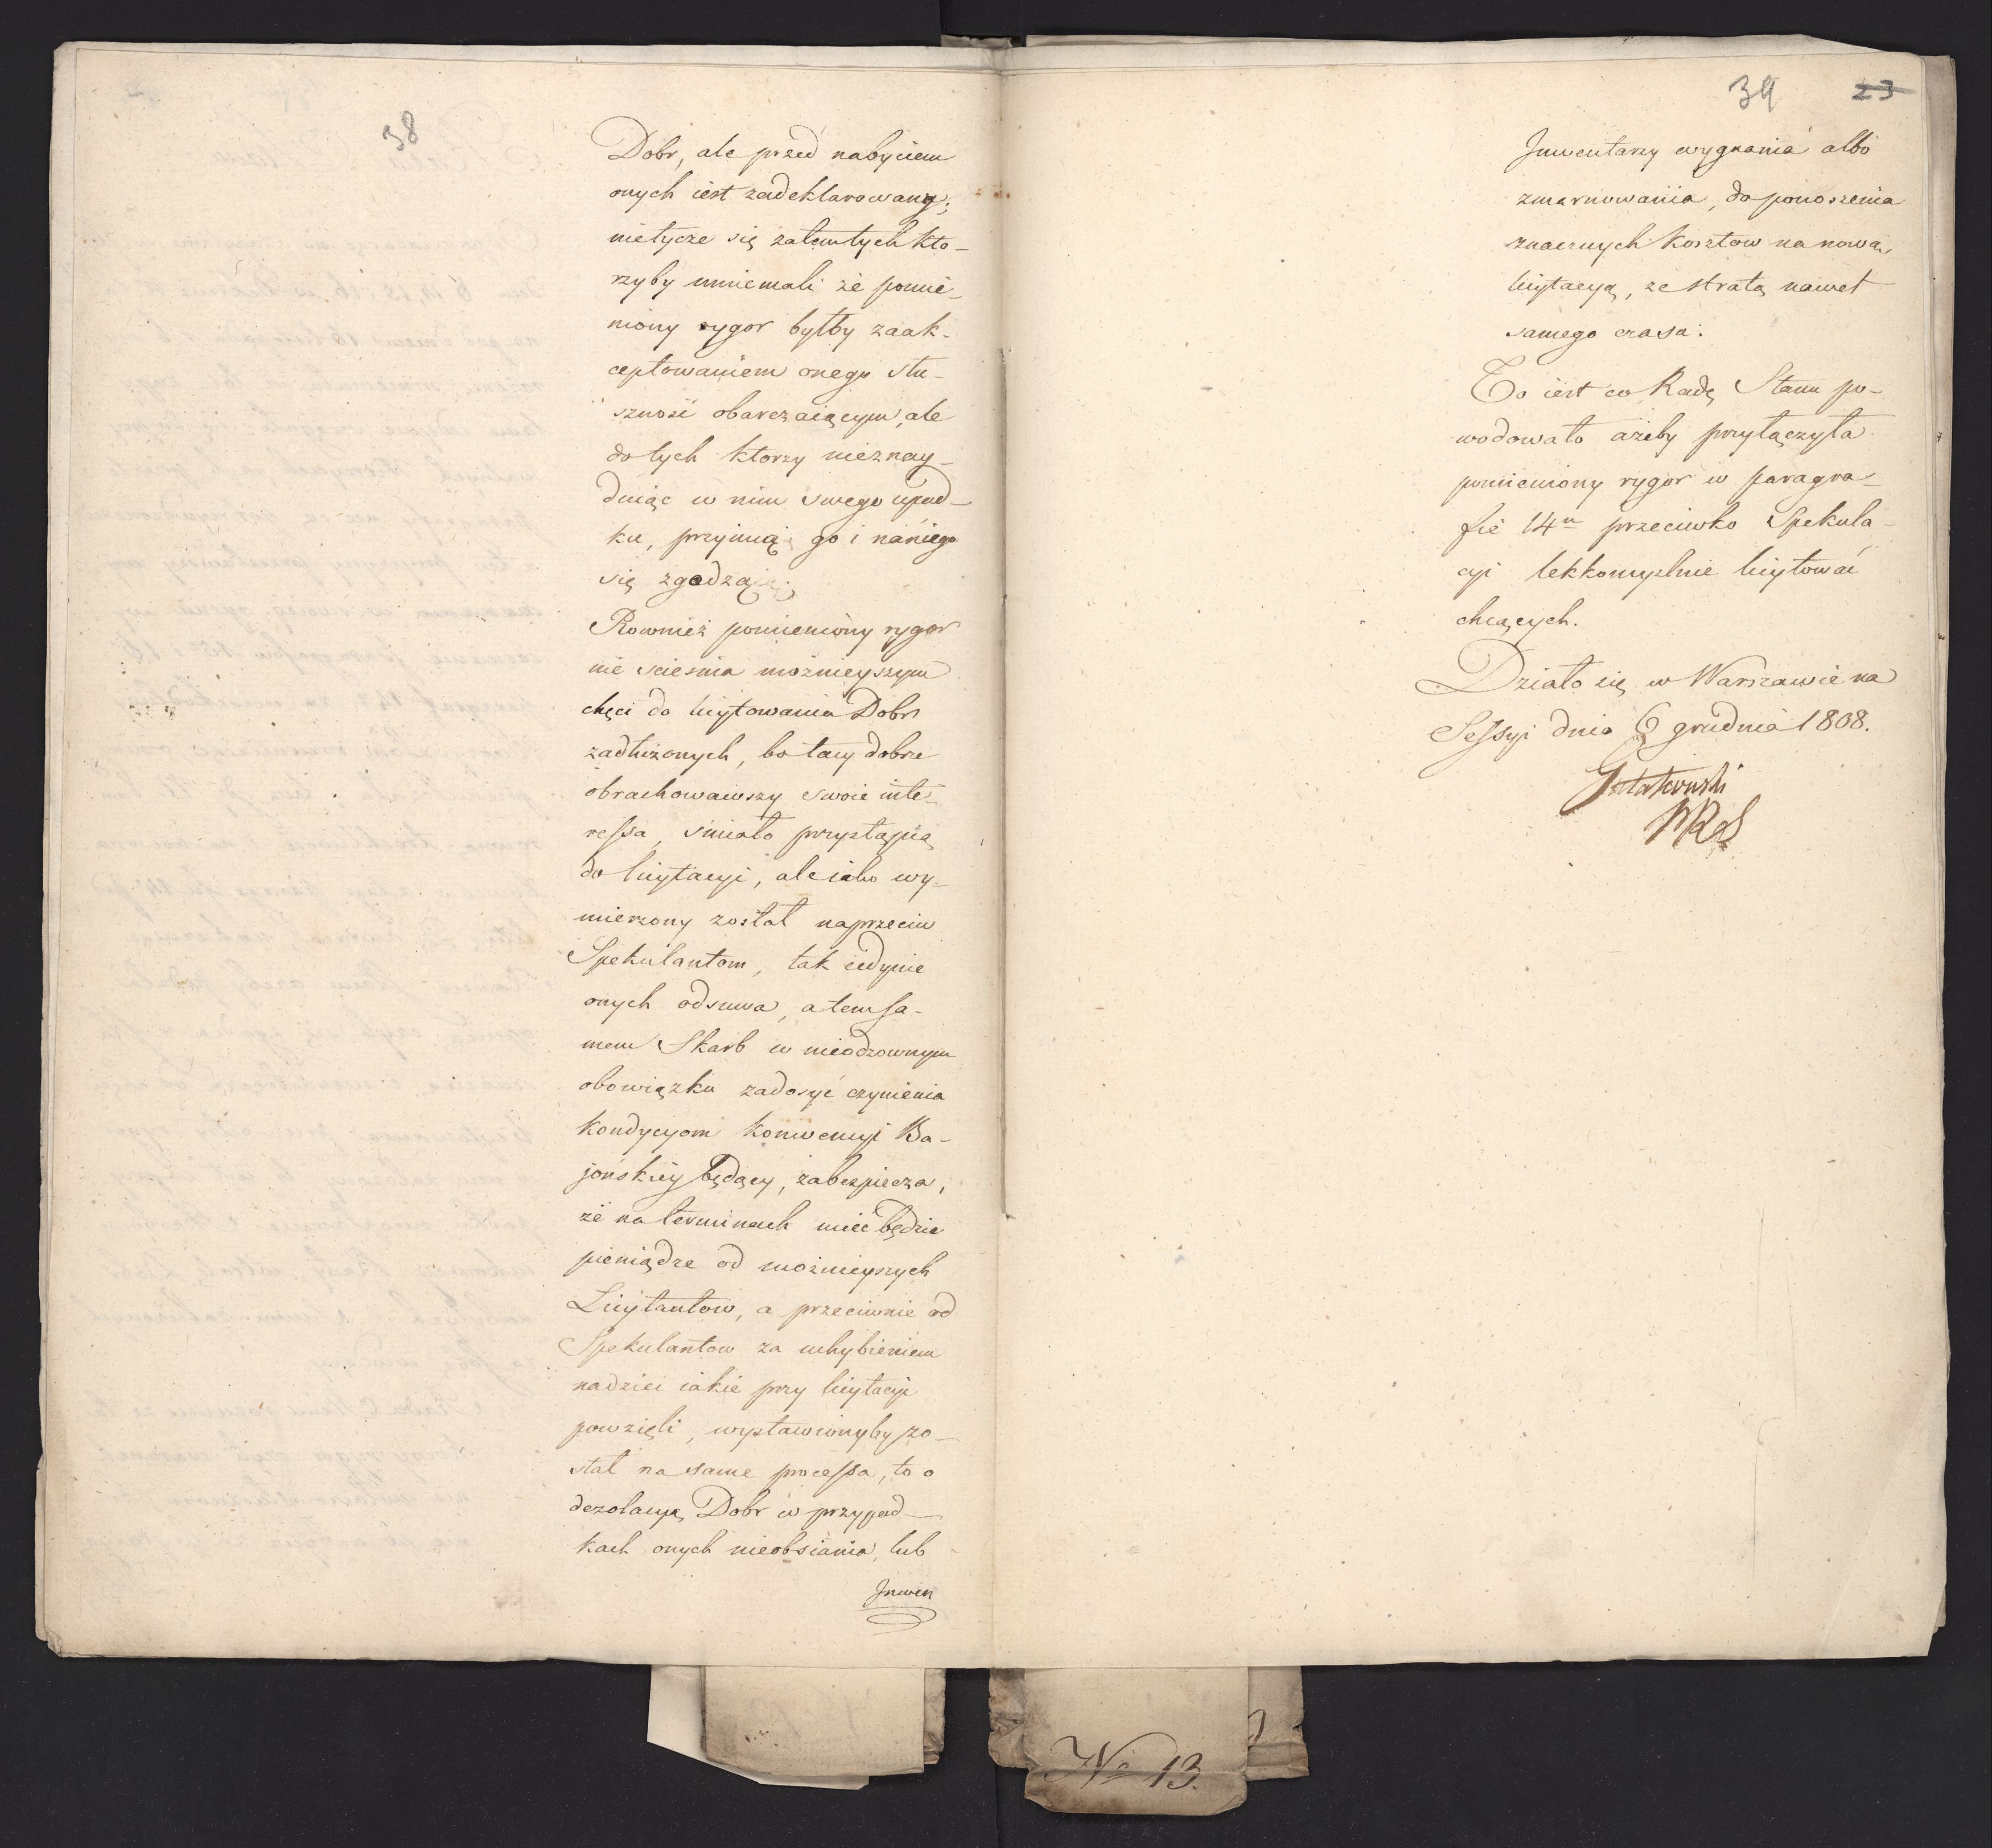 38
Dobr, ale przed nabyciem
onych iest zadeklarowany;
nietycze się zatem tych kto-
rzyby mniemali że pomie-
niony rygor byłby zaak-
ceptowaniem onego słu-
szność obarczaiącym, ale
do tych ktorzy nieznay-
duiąc w nim swego upad-
ku, przyimią go i na niego
się zgodzą.
Rownież pomieniony rygor
nie scieśnia możnieyszym
chęci do licytowania Dobr
zadłużonych, bo tacy dobrze
obrachowawszy swoie inte-
ressa, śmiało przystąpią
do licytacyi, ale iako wy-
mierzony został naprzeciw
Spekulantom, tak iedynie
onych odsuwa, a tem sa-
mem Skarb w nieodzownym
obowiązku zadosyć czynienia
kondycyom konwencyi Ba-
jońskiey będący, zabezpiecza,
że na terminach mieć będzie
pieniądze od możnieyszych
Licytantow, a przeciwnie od
Spekulantow za uchybieniem
nadziei iakie przy licytacyi
powzięli, wystawionyby zo-
stał na same processa, to o
dezolacyą Dobr w przypad-
kach onych nieobsiania, lub
Inwen
39 23
Inwentarzy wygnania albo
zmarnowania, do ponoszenia
znacznych kosztow na nową
licytacyą, ze stratą nawet
samego czasu.
To iest co Radę Stanu po-
wodowało ażeby przyłączyła
pomieniony rygor w paragra-
fie 14m przeciwko Spekula-
cyi lekkomyślnie licytować
chcących.
Działo się w Warszawie na
Sessyi dnia 6 grudnia 1808.
No 13.